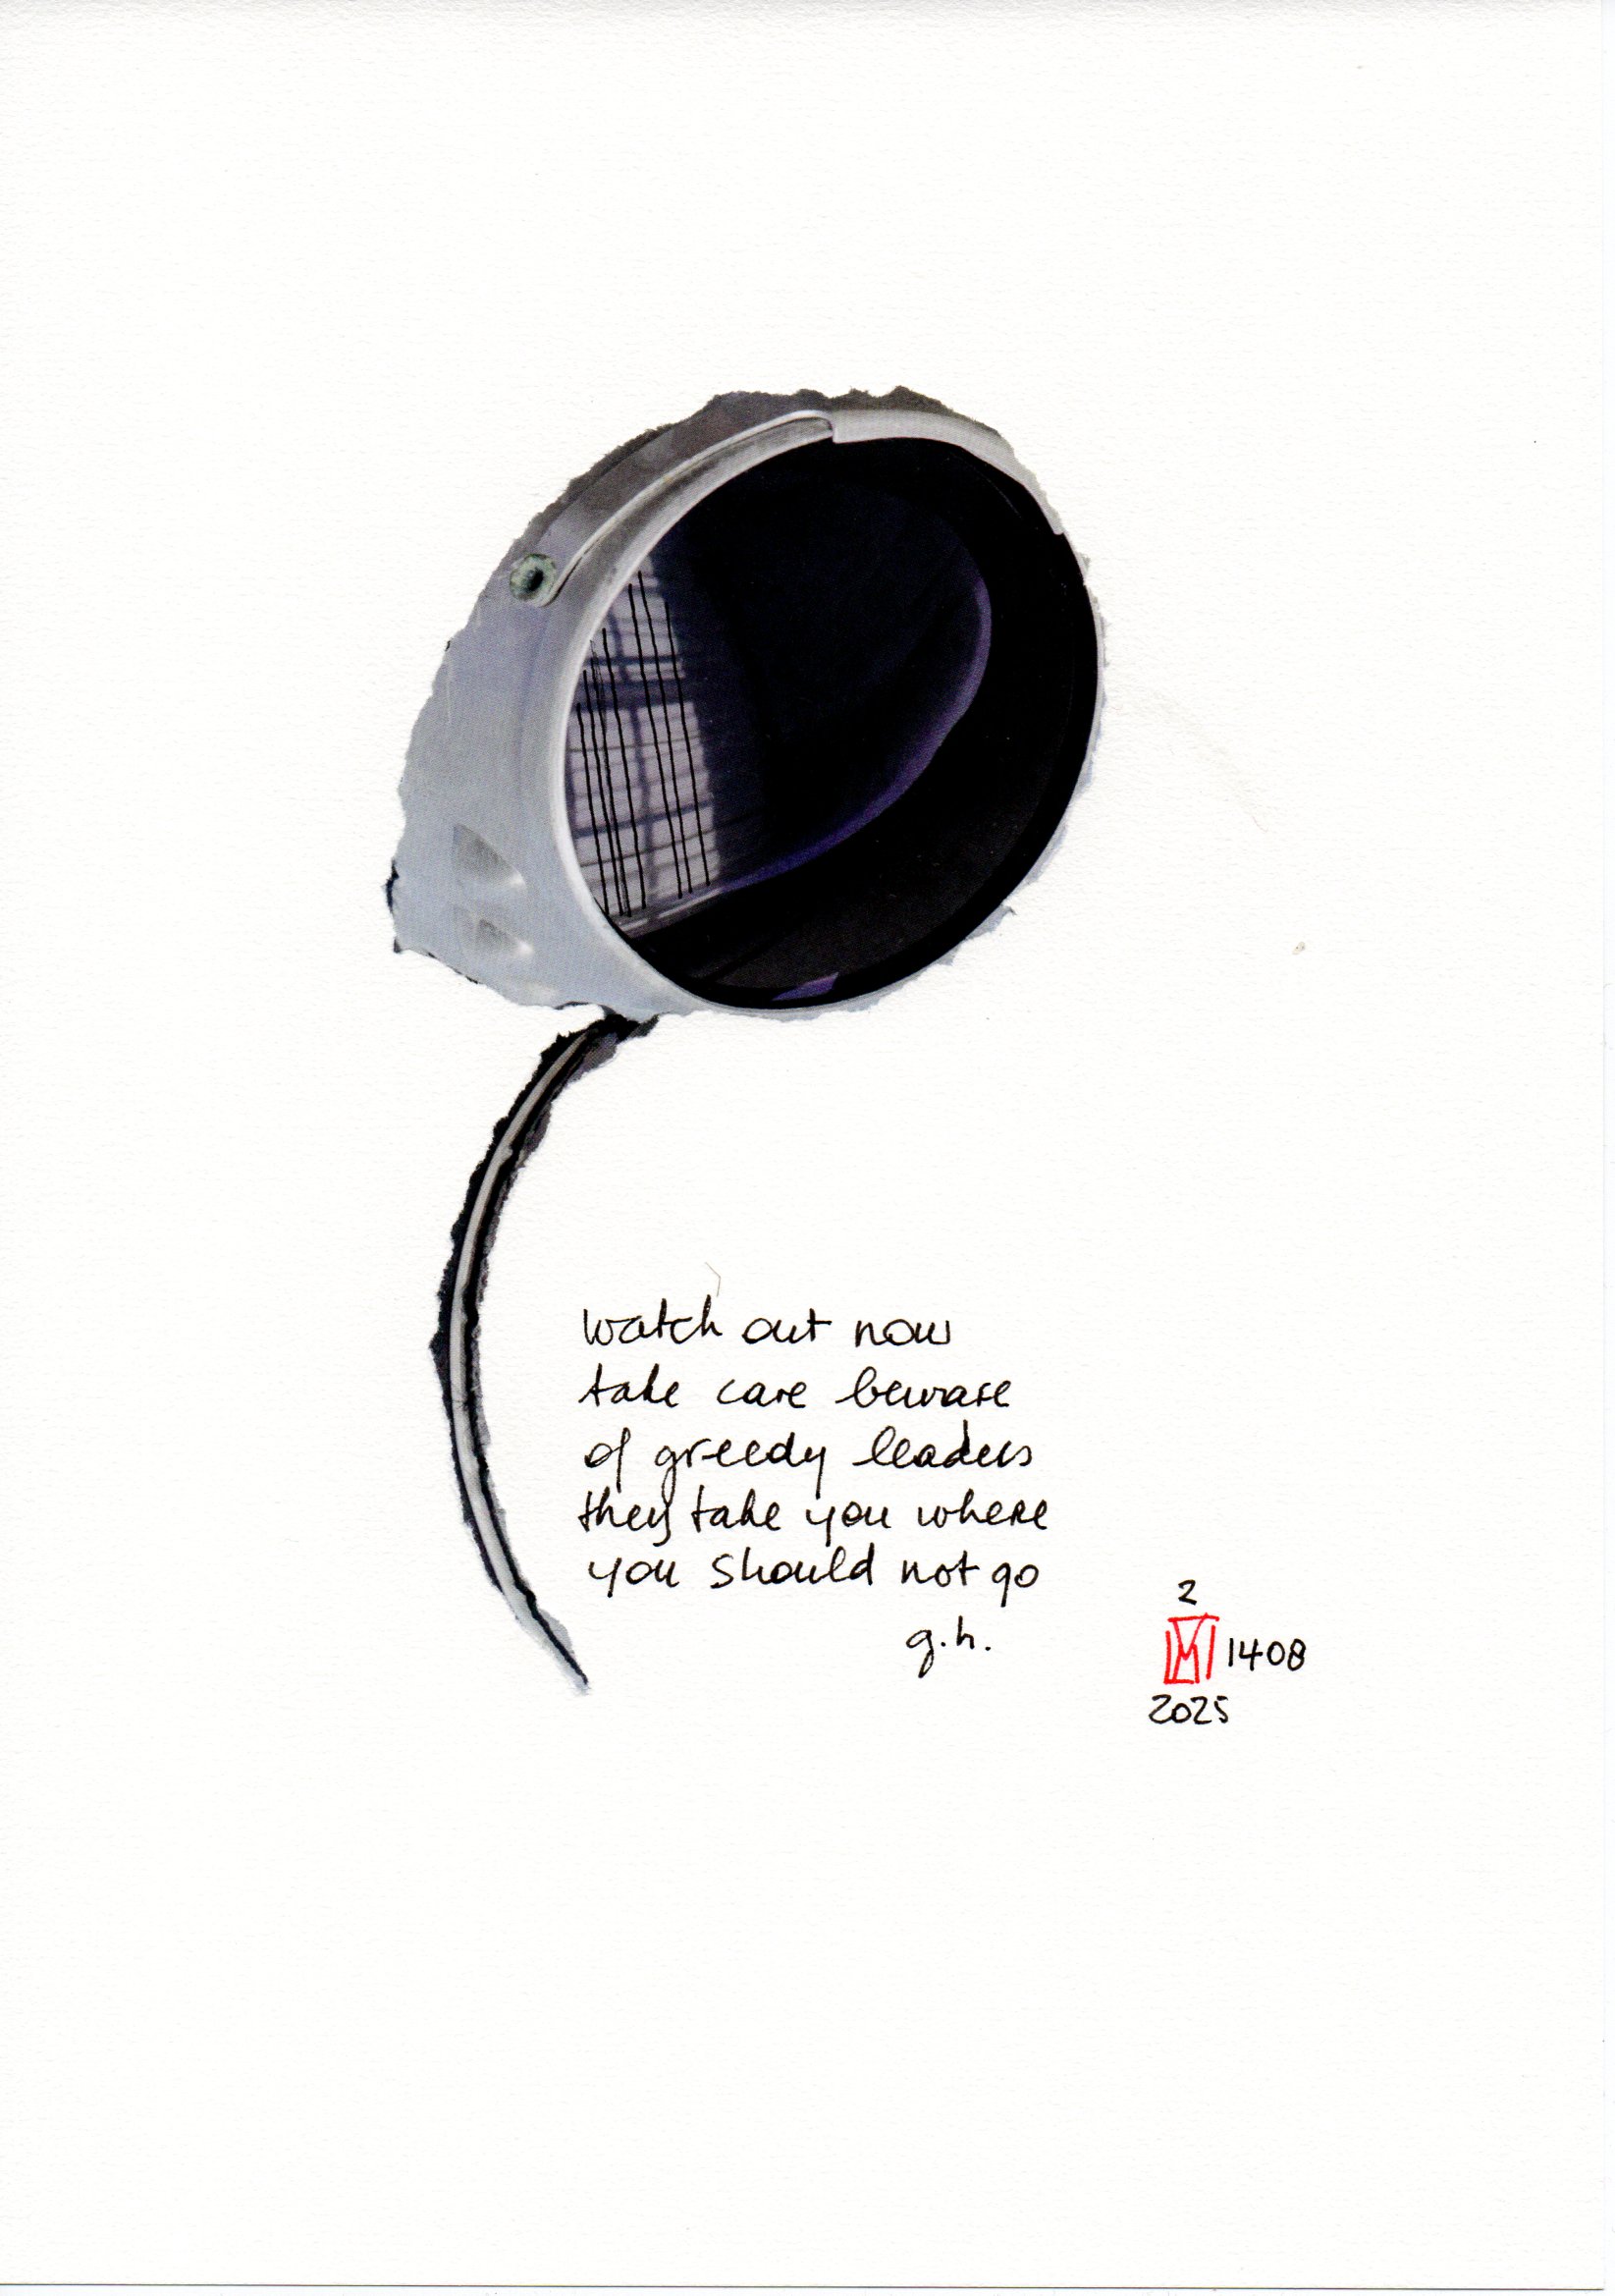 watch out now
take care beware
of greedy leaders
they take you where
you should not go
g.h.
2
1408
2025